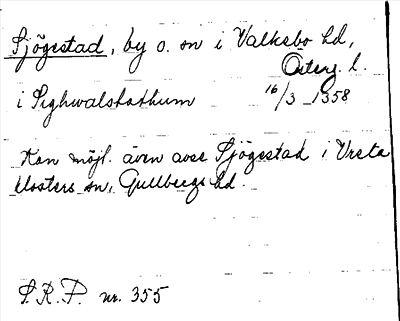 Sjögestad, by o. sn i Valkebo hd,
Österg. l.
i Sighwalstathum 16/3 1358
Kan möjl. även avse Sjögestad i Vreta
klosters sn, Gullbergs hd.
S.R.P. nr. 355